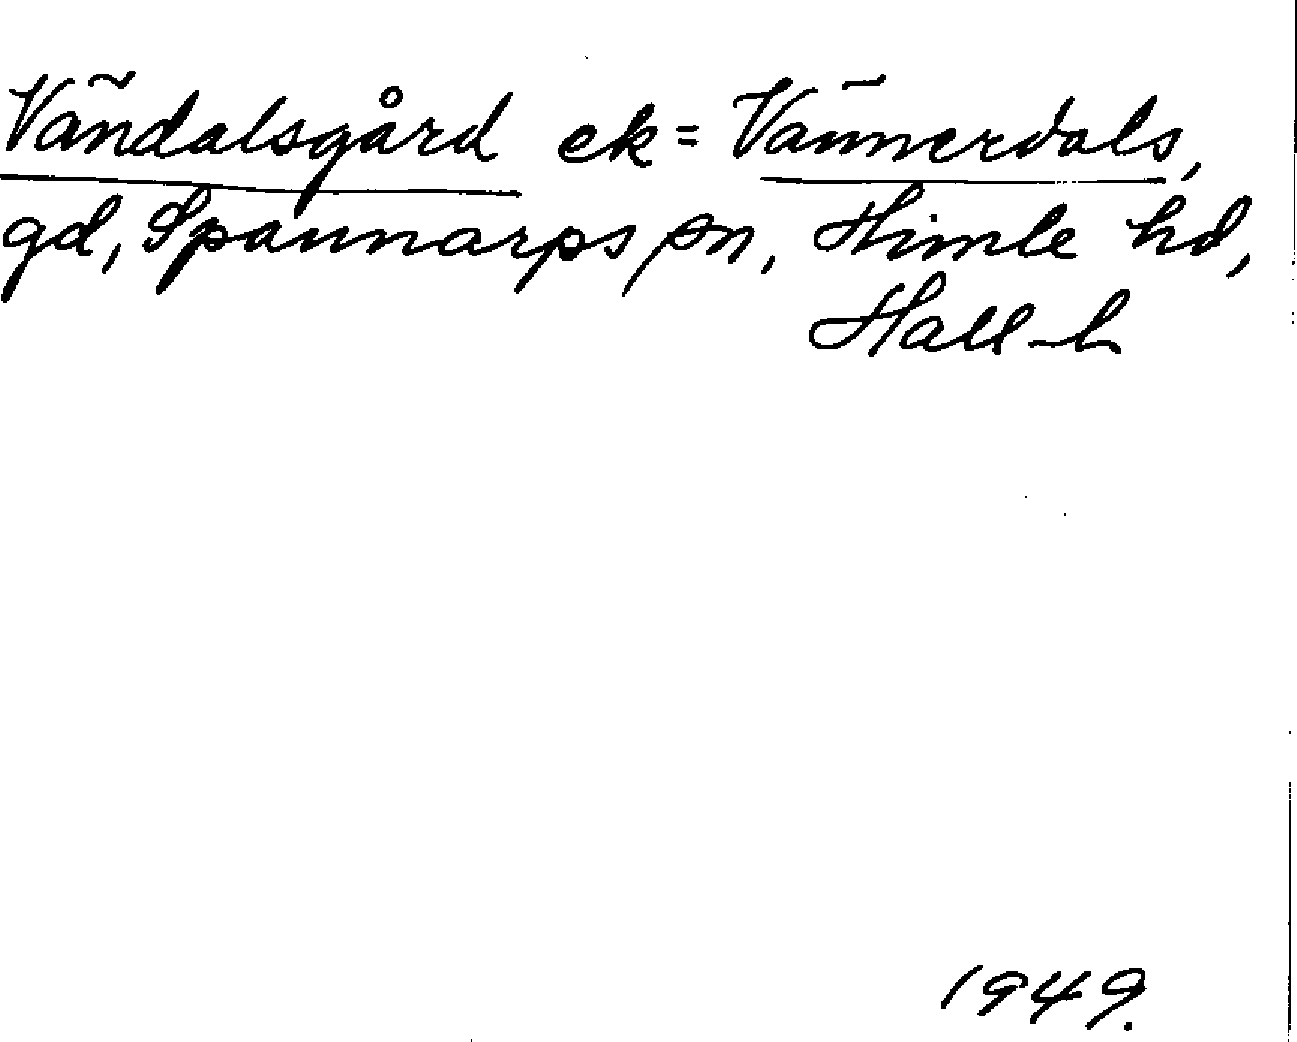 Vändalsgård ek = Vännerdals,
gd, Spannarps sn, Himle hd,
Hall-l
1949.